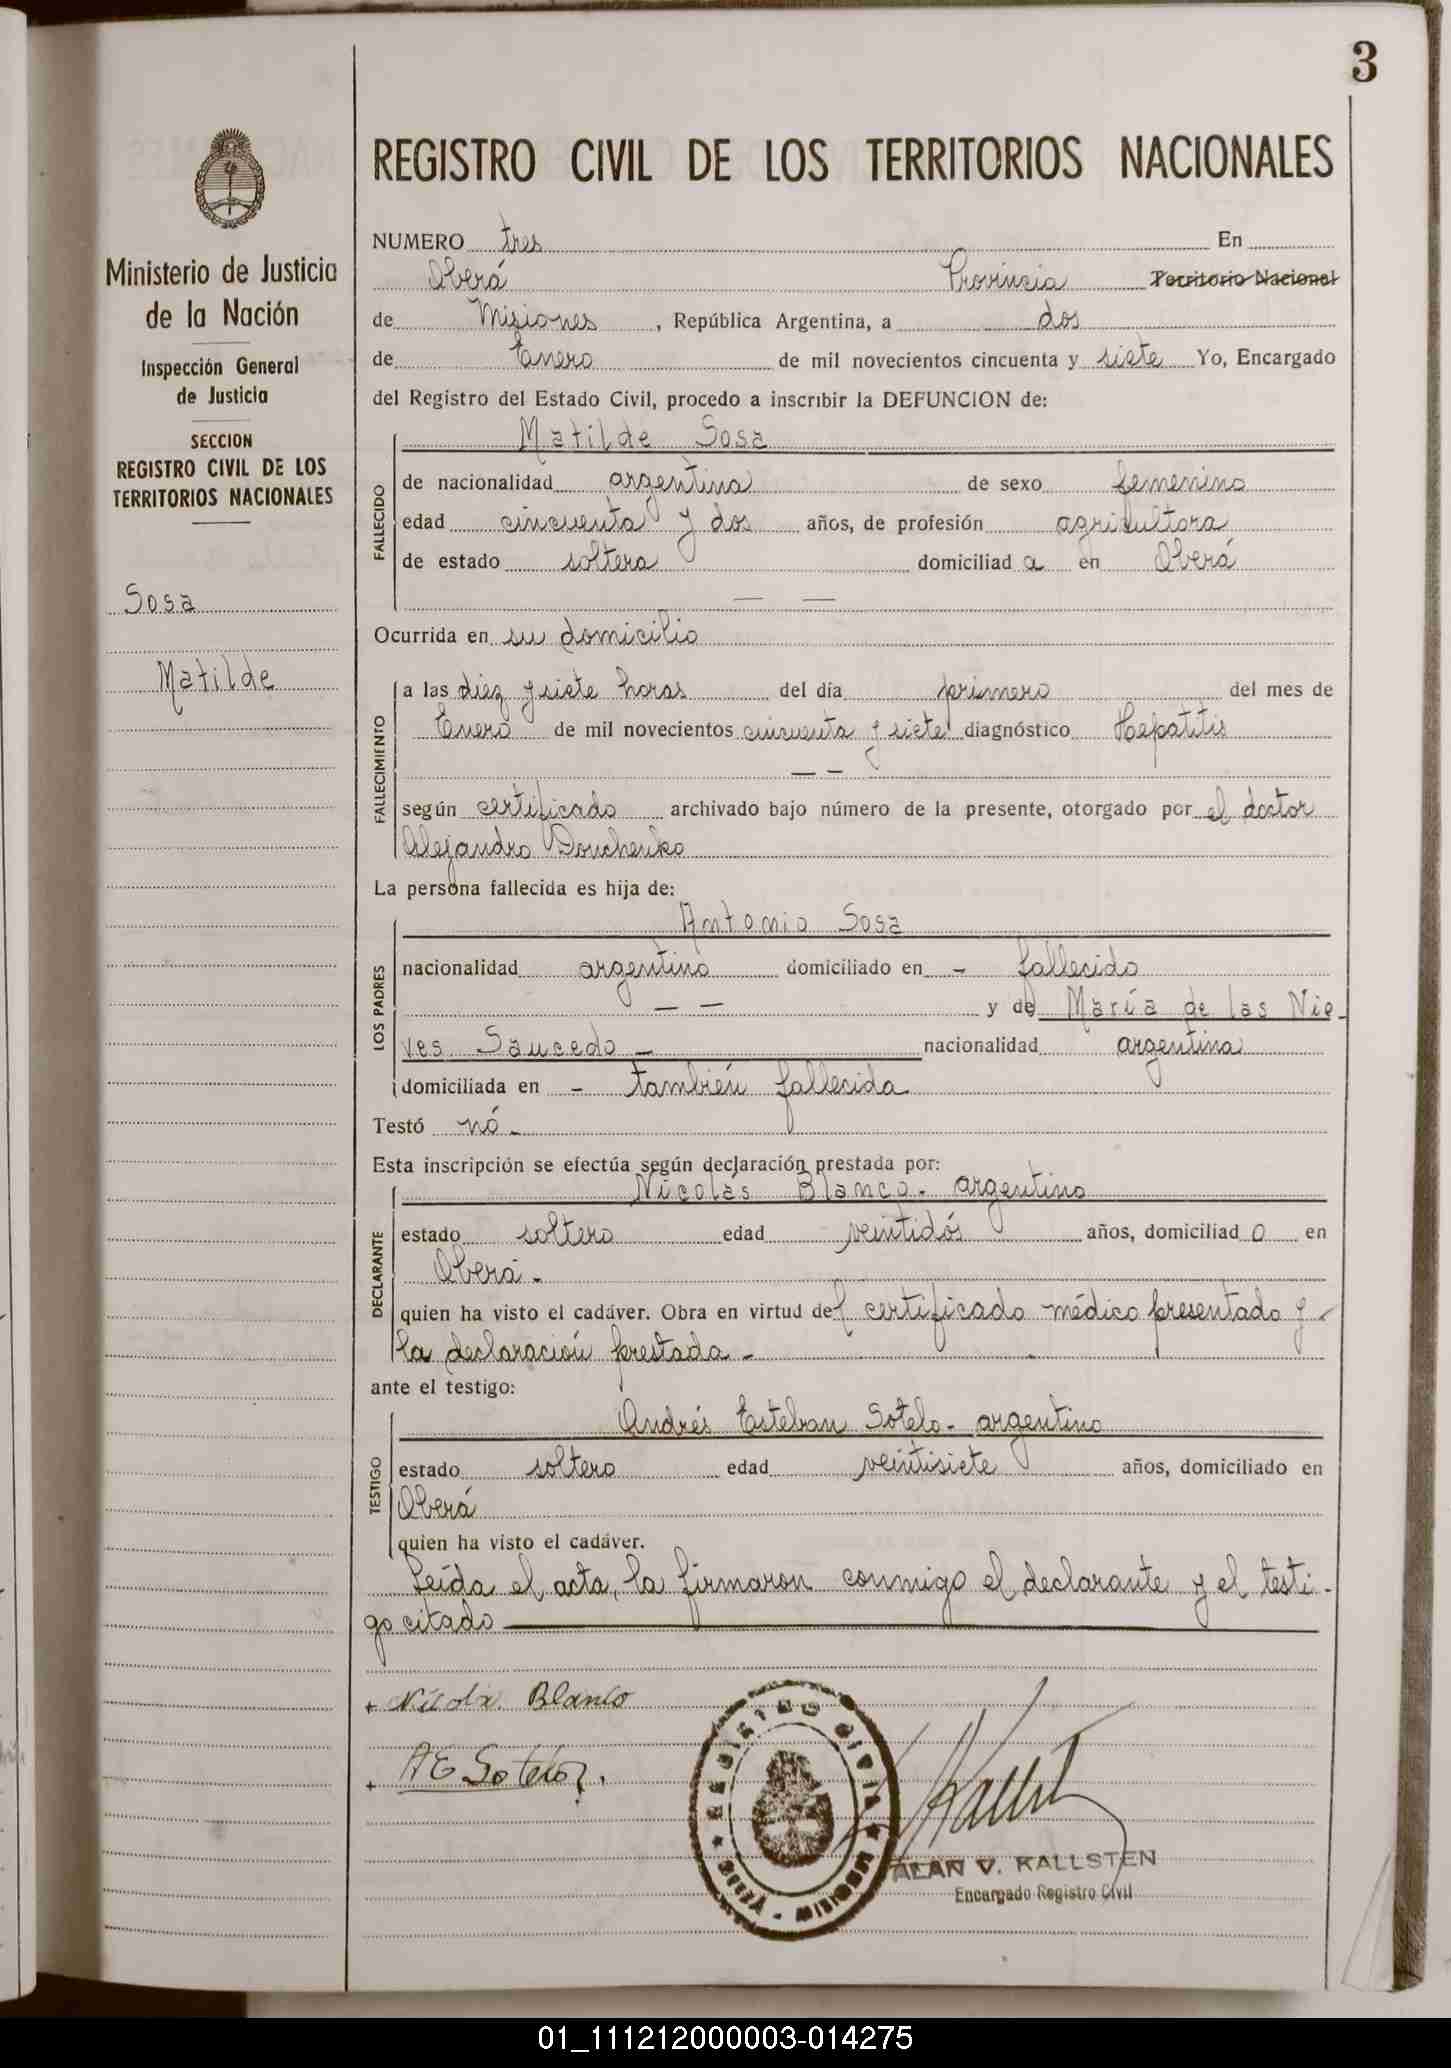 3
REGISTRO CIVIL DE LOS TERRITORIOS NACIONALES
Ministerio de Justicia
de la Nación
Inspección General
de Justicia
SECCION
REGISTRO CIVIL DE LOS
TERRITORIOS NACIONALES
Sosa
Matilde
NUMERO tres En
Oberá Provincia Territorio Nacional
de Misiones, República Argentina, a dos
de Enero de mil novecientos cincuenta y siete Yo, Encargado
del Registro del Estado Civil, procedo a inscribir la DEFUNCION de:
FALLECIDO
Matilde Sosa
de nacionalidad argentina de sexo femenino
edad cincuenta y dos años, de profesión agricultora
de estado soltera domiciliad a en Oberá
— —
Ocurrida en su domicilio
FALLECIMIENTO
a las diez y siete horas del día primero del mes de
Enero de mil novecientos cincuenta y siete diagnóstico Hepatitis
— —
según certificado archivado bajo número de la presente, otorgado por el doctor
Alejandro
La persona fallecida es hija de:
LOS PADRES
Antonio Sosa
nacionalidad argentino domiciliado en - fallecido
— — y de María de las Nie-
ves Saucedo -
nacionalidad argentina
domiciliada en - también fallecida
Testó nó -
Esta inscripción se efectúa según declaración prestada por:
DECLARANTE
Nicolás Blanco - argentino
estado soltero edad veintidós años, domiciliad o en
Oberá -
quien ha visto el cadáver. Obra en virtud del certificado médico presentado y
la declaración prestada -
ante el testigo:
TESTIGO
Andrés Esteban Sotelo - argentino
estado soltero edad veintisiete años, domiciliado en
Oberá
quien ha visto el cadáver.
Leída el acta, la firmaron conmigo el declarante y el testi-
go citado
+ Blanco
+ AE Sotelo
REGISTRO CIVIL
MISIONES
ALAN V. KALLSTEN
Encargado Registro Civil
01_111212000003-014275